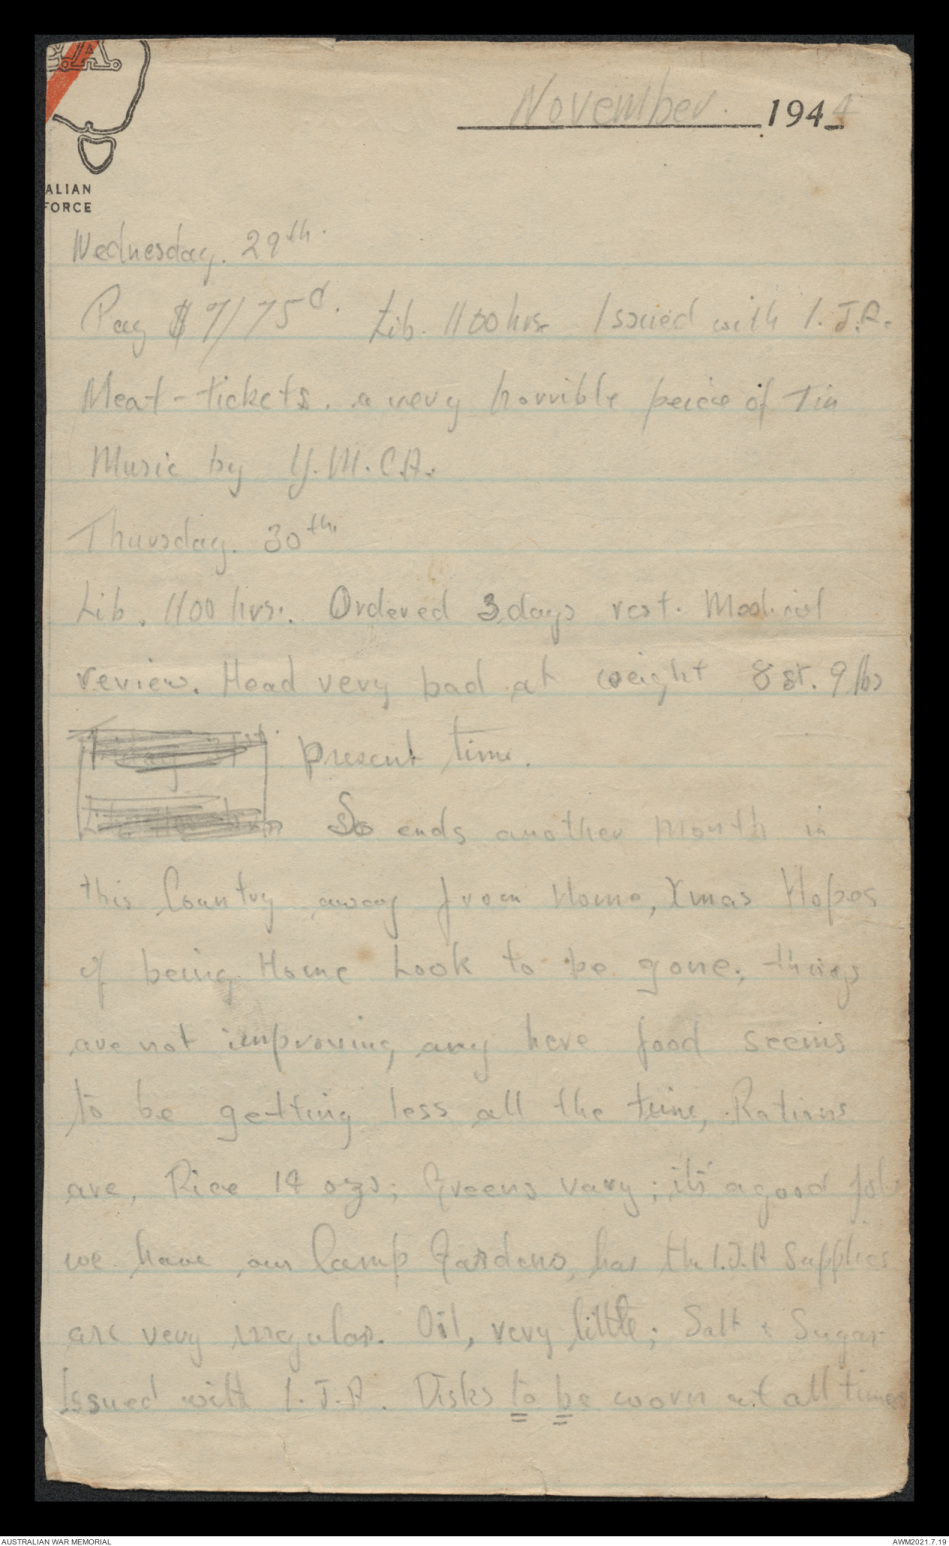 .A.
ALIAN
FORCE
November 1944
Wednesday. 29th.
Pay $ 7/75d. Lib. 1100 hrs. Issued with I.J.A.
Meat-tickets. a very horrible peice of Tin
Music by Y.M.C.A.
Thursday. 30th.
Lib. 1100 hrs. Ordered 3 days rest. Medical
review. Head very bad at weight 8 st. 9 lbs
present time.
So ends another Month in
this Country away from Home, Xmas Hopes
of being Home Look to be gone; things
are not improving any here food seems
to be getting less all the time, Rations
are, Rice 14 ozs; Greens vary; its a good job
we have our Camp Gardens, has the I.J.A Supplies
are very irregular. Oil, very little; Salt & Sugar
Issued with I.J.A. Disks to be worn at all times
AUSTRALIAN WAR MEMORIAL
AWM2021.7.19